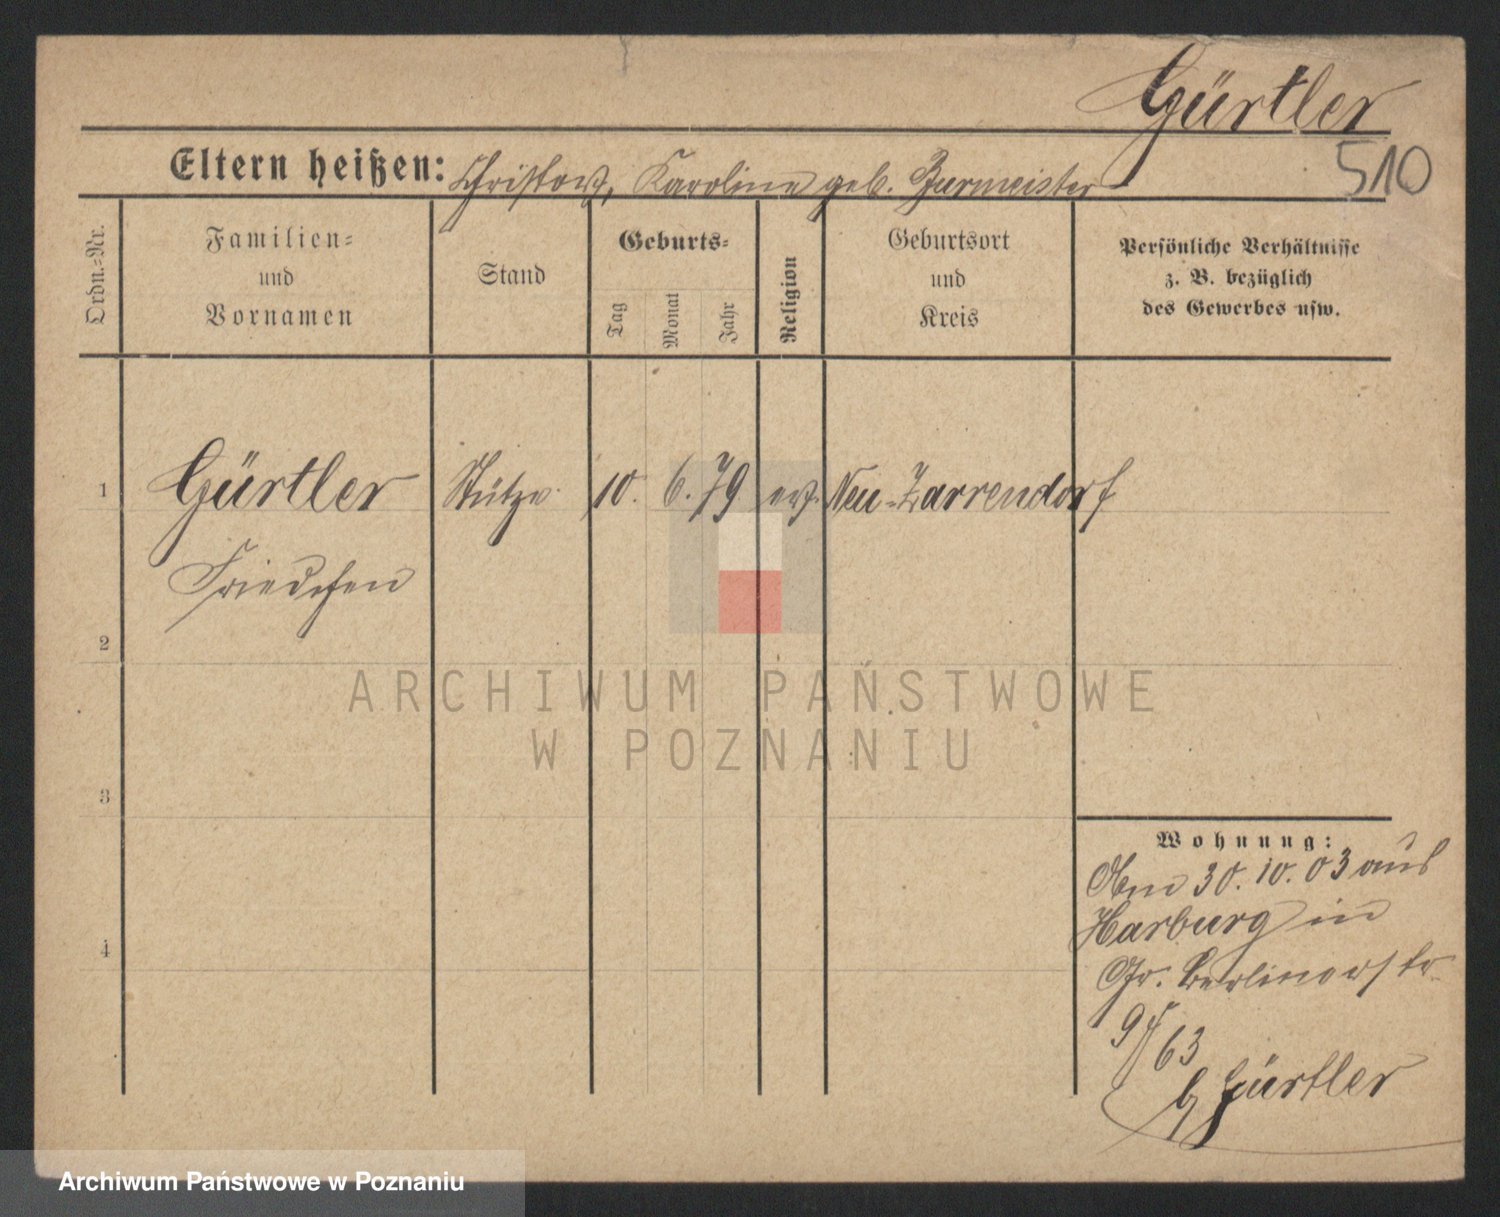 Gürtler
510
Eltern heißen: Christoph, Karoline geb. Burmeister
Ordn.-Nr.
Familien-
und
Vornamen
Stand
Geburts-
Tag
Monat
Jahr
Religion
Geburtsort
und
Kreis
Persönliche Verhältnisse
z. B. bezüglich
des Gewerbes usw.
1
Gürtler
Stütze
10.
6.
79
Neu-Zarrendorf
Friedchen
2
ARCHIWUM PAŃSTWOWE
W POZNANIU
3
4
Wohnung:
30.10.03 aus
Harburg in
Gr. Berlinerstr.
63
b/ Gürtler
Archiwum Państwowe w Poznaniu